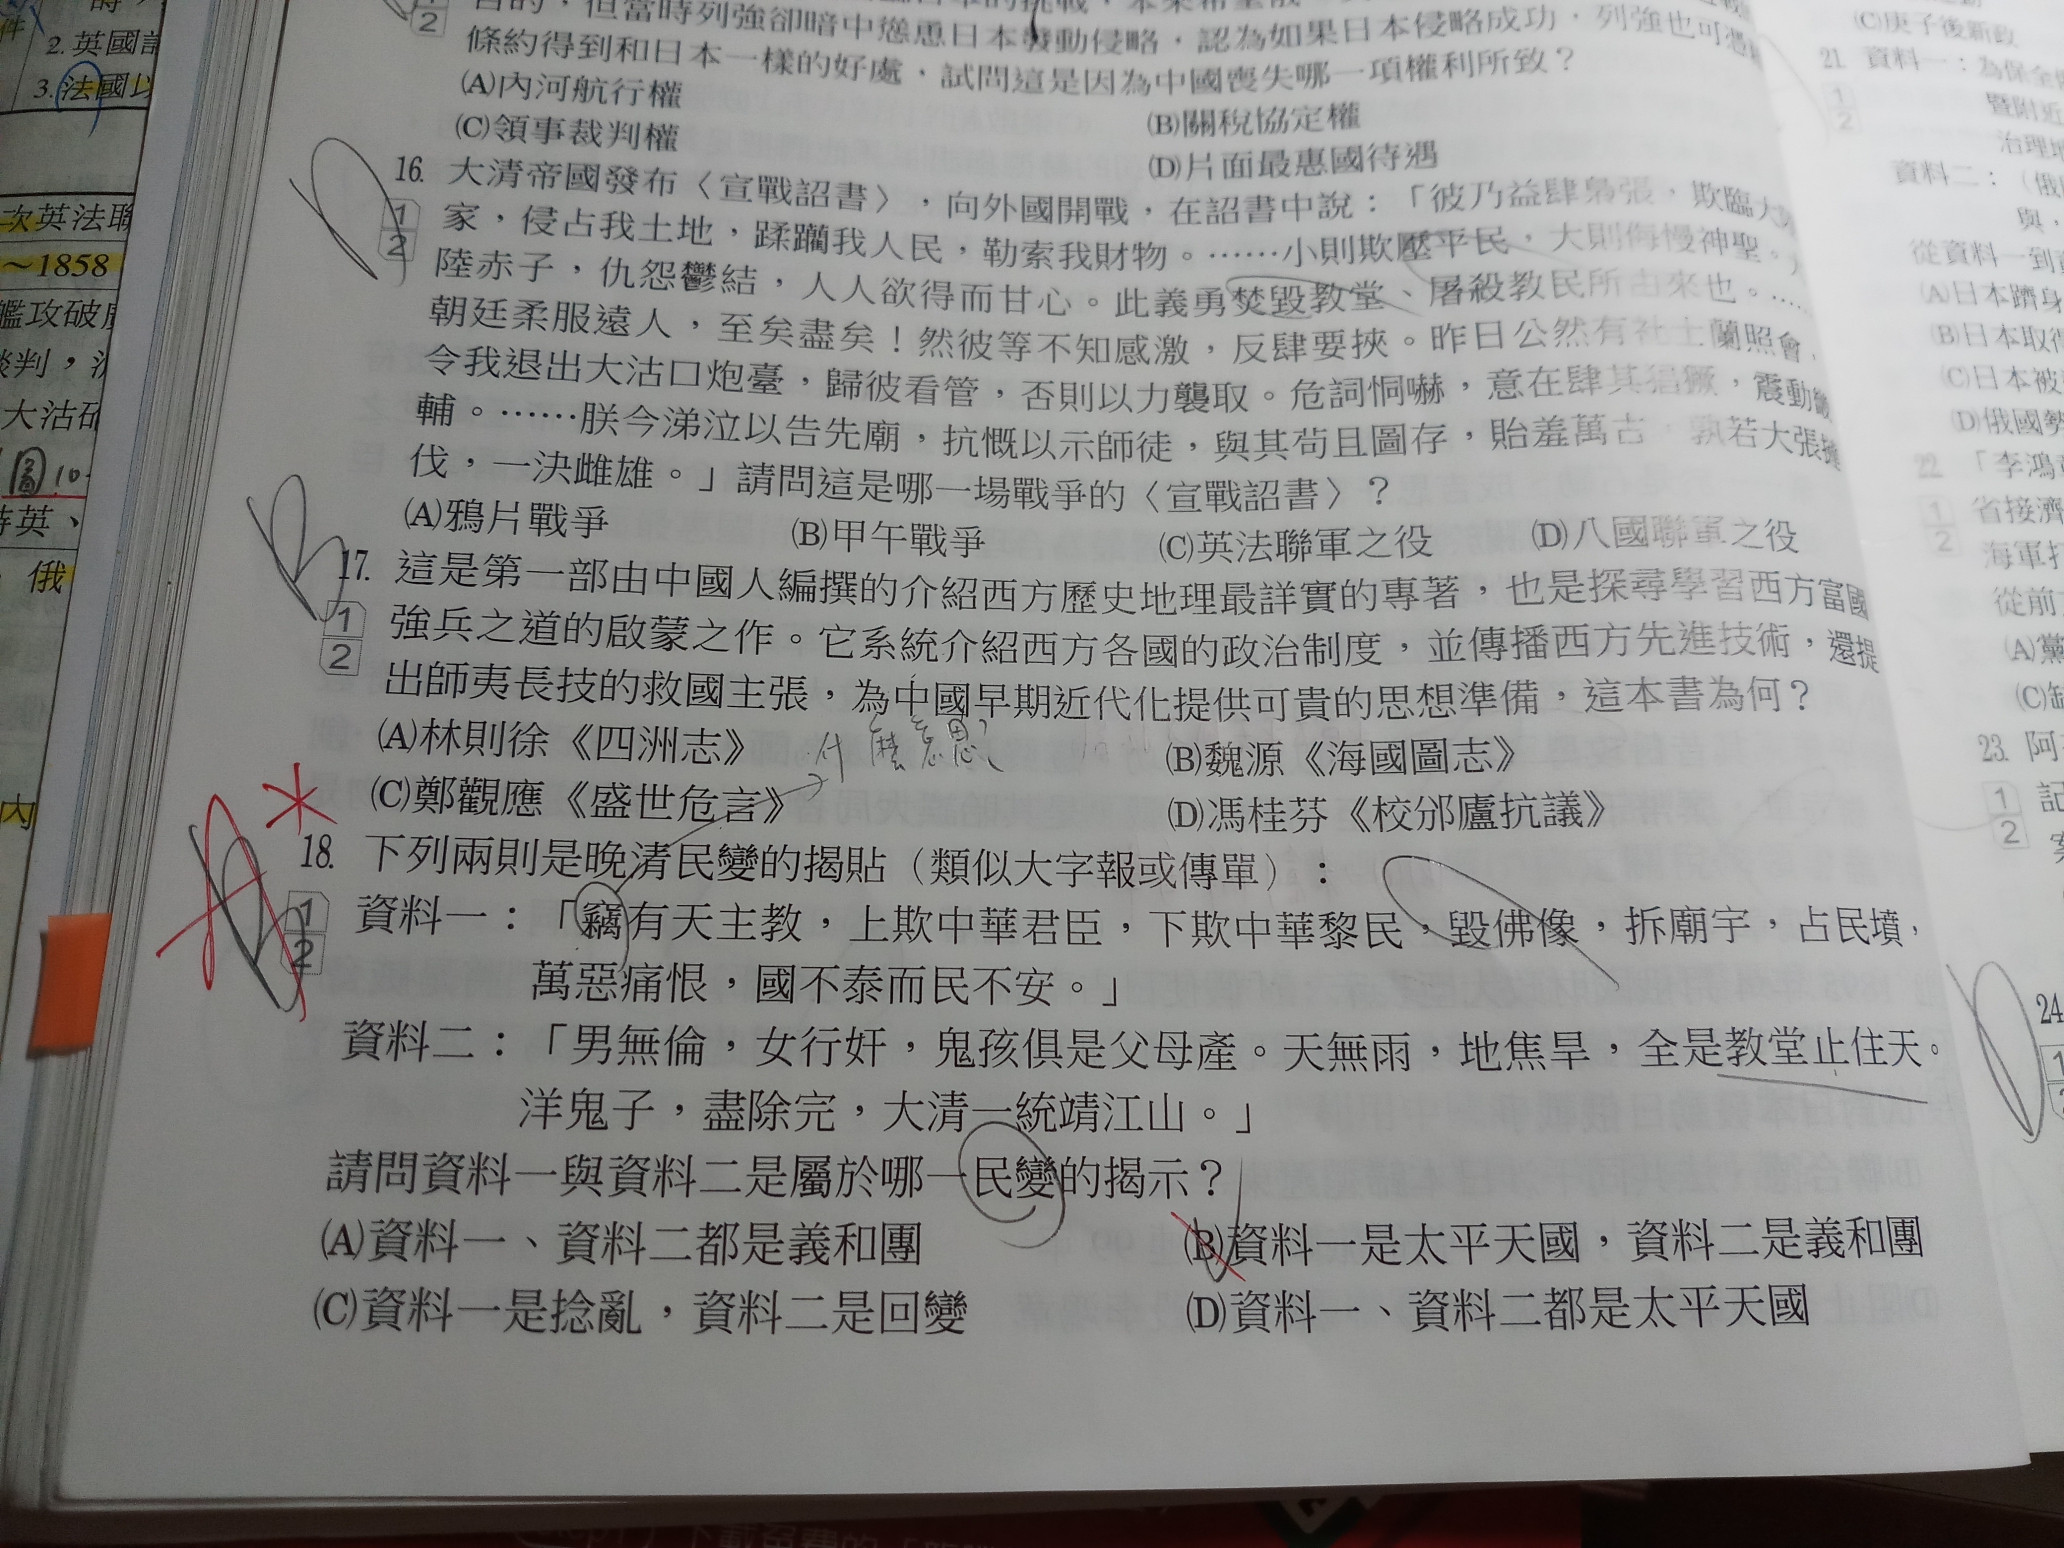 2. 英國
3. 法國以
次英法聯
～1858
艦攻破
談判，
大沽砲
俄
內
條約得到和日本一樣的好處，試問這是因為中國喪失哪一項權利所致？
(A)內河航行權
(B)關稅協定權
(C)領事裁判權
(D)片面最惠國待遇
16. 大清帝國發布〈宣戰詔書〉，向外國開戰，在詔書中說：「彼乃益肆梟張，欺臨
家，侵占我土地，蹂躪我人民，勒索我財物。……小則欺壓平民，大則侮慢神聖。
陸赤子，仇怨鬱結，人人欲得而甘心。此義勇焚毀教堂、屠殺教民所由來也。……
朝廷柔服遠人，至矣盡矣！然彼等不知感激，反肆要挾。昨日公然有社士蘭照會，
令我退出大沽口炮臺，歸彼看管，否則以力襲取。危詞恫嚇，意在肆其猖獗，震動
輔。……朕今涕泣以告先廟，抗慨以示師徒，與其苟且圖存，貽羞萬古，孰若大張
伐，一決雌雄。」請問這是哪一場戰爭的〈宣戰詔書〉？
(A)鴉片戰爭 (B)甲午戰爭 (C)英法聯軍之役 (D)八國聯軍之役
17. 這是第一部由中國人編撰的介紹西方歷史地理最詳實的專著，也是探尋學習西方富國
強兵之道的啟蒙之作。它系統介紹西方各國的政治制度，並傳播西方先進技術，還提
出師夷長技的救國主張，為中國早期近代化提供可貴的思想準備，這本書為何？
什麼意思？
(A)林則徐《四洲志》
(B)魏源《海國圖志》
(C)鄭觀應《盛世危言》
(D)馮桂芬《校邠廬抗議》
18. 下列兩則是晚清民變的揭貼（類似大字報或傳單）：
資料一：「竊有天主教，上欺中華君臣，下欺中華黎民，毀佛像，拆廟宇，占民墳，
萬惡痛恨，國不泰而民不安。」
資料二：「男無倫，女行奸，鬼孩俱是父母產。天無雨，地焦旱，全是教堂止住天。
洋鬼子，盡除完，大清一統靖江山。」
請問資料一與資料二是屬於哪一民變的揭示？
(A)資料一、資料二都是義和團
(B)資料一是太平天國，資料二是義和團
(C)資料一是捻亂，資料二是回變
(D)資料一、資料二都是太平天國
(C)庚子後新政
21 資料一：為保全
暨附近
治理
資料二：（俄
與，
從資料一到
(A)日本躋身
(B)日本取得
(C)日本被
(D)俄國勢
22 「李鴻
省接濟
海軍
從前
(A)黨
(C)
23. 阿
記
24